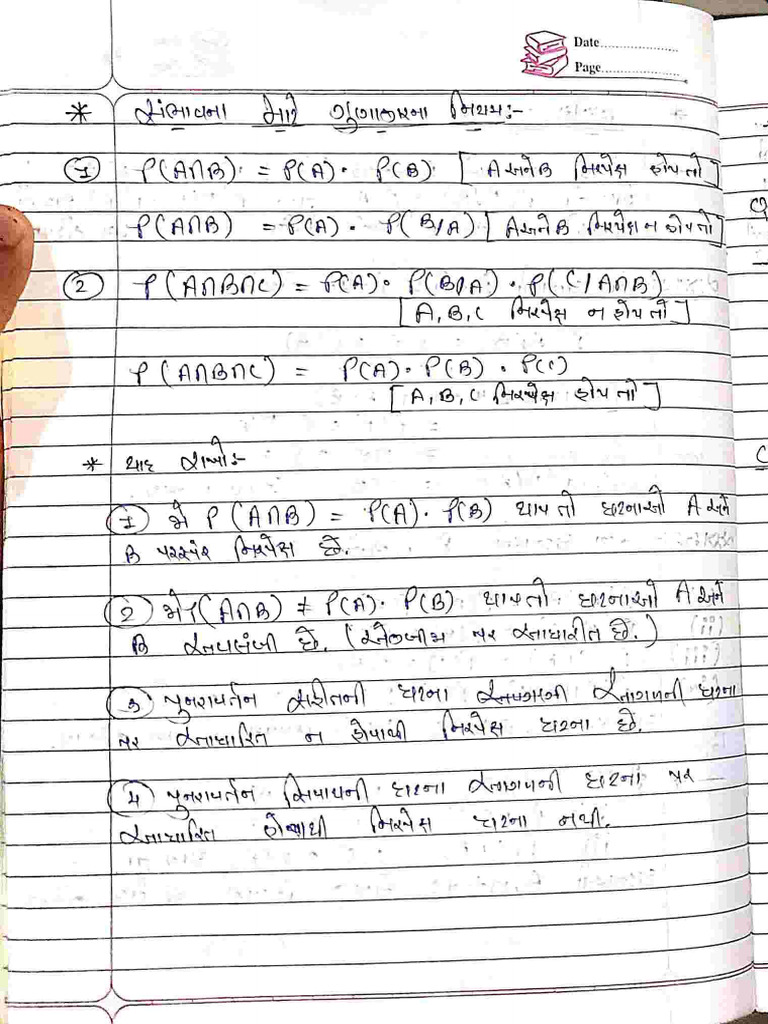 Date..................
Page..................
* સંભાવના માટે ગુણાકારના નિયમ:-
① P(A∩B) = P(A)· P(B) [A અને B નિરપેક્ષ હોય તો]
P(A∩B) = P(A)· P(B/A) [A અને B નિરપેક્ષ ન હોય તો]
② P(A∩B∩C) = P(A)· P(B/A)· P(C/A∩B)
[A, B, C નિરપેક્ષ ન હોય તો]
P(A∩B∩C) = P(A)· P(B)· P(C)
[A, B, C નિરપેક્ષ હોય તો]
* યાદ રાખો:-
① જો P(A∩B) = P(A)· P(B) થાય તો ઘટનાઓ A અને
B પરસ્પર નિરપેક્ષ છે.
② જો P(A∩B) ≠ P(A)· P(B) થાય તો ઘટનાઓ A અને
B અવલંબી છે. (એકબીજા પર આધારીત છે.)
③ પુનરાવર્તન સહીતની ઘટના આગળની ઘટના
પર આધારિત ન હોવાથી નિરપેક્ષ ઘટના છે.
④ પુનરાવર્તન સિવાયની ઘટના આગળની ઘટના પર
આધારિત હોવાથી નિરપેક્ષ ઘટના નથી.